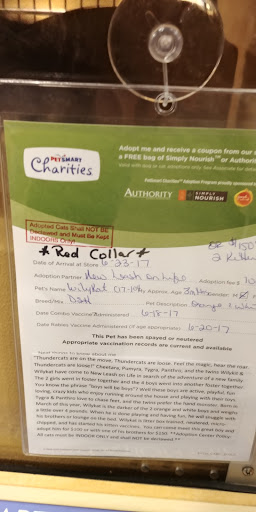 PETSMART
Charities
Adopt me and receive a coupon from our
a FREE bag of Simply Nourish™ or Authori
AUTHORITY SIMPLY NOURISH
Adopted Cats Shall NOT BE
Declawed and Must Be Kept
INDOORS Only!
*Red Collar*
Date of Arrival at Store 6-23-17
Adoption Partner New Leash on Life
Pet's name Wilykat Approx. Age
Breed/Mix DSH Pet Description Orange & White
Date Combo Vaccine Administered 6-18-17
Date Rabies Vaccine Administered (if age appropriate) 6-20-17
This Pet has been spayed or neutered
Appropriate vaccination records are current and available
Neat things to know about me
"Thundercats are on the move, Thundercats are loose. Feel the magic, hear the roar,
Thundercats are loose!" Cheetara, Pumyra, Tygra, Panthro, and the twins Wilykit &
Wilykat have come to New Leash on Life in search of the adventure of a new family.
The 2 girls went in foster together and the 4 boys went into another foster together.
You know the phrase "boys will be boys"? Well these boys are active, playful, fun
loving, crazy kids who enjoy running around the house and playing with their toys.
Tygra & Panthro love to chase feet, and the twins prefer the hand monster. Born in
March of this year, Wilykat is the darker of the 2 orange and white boys and weighs
a little over 4 pounds. When he is done playing and having fun, he will snuggle with
his brothers or lounge on the bed. Wilykat is litter box trained, neutered, micro-
chipped, and has started his kitten vaccines. You can adopt this great boy and
adopt him for $100 or with one of his brothers for $150. **Adoption Center Policy:
All cats must be INDOOR ONLY and shall NOT be declawed.**